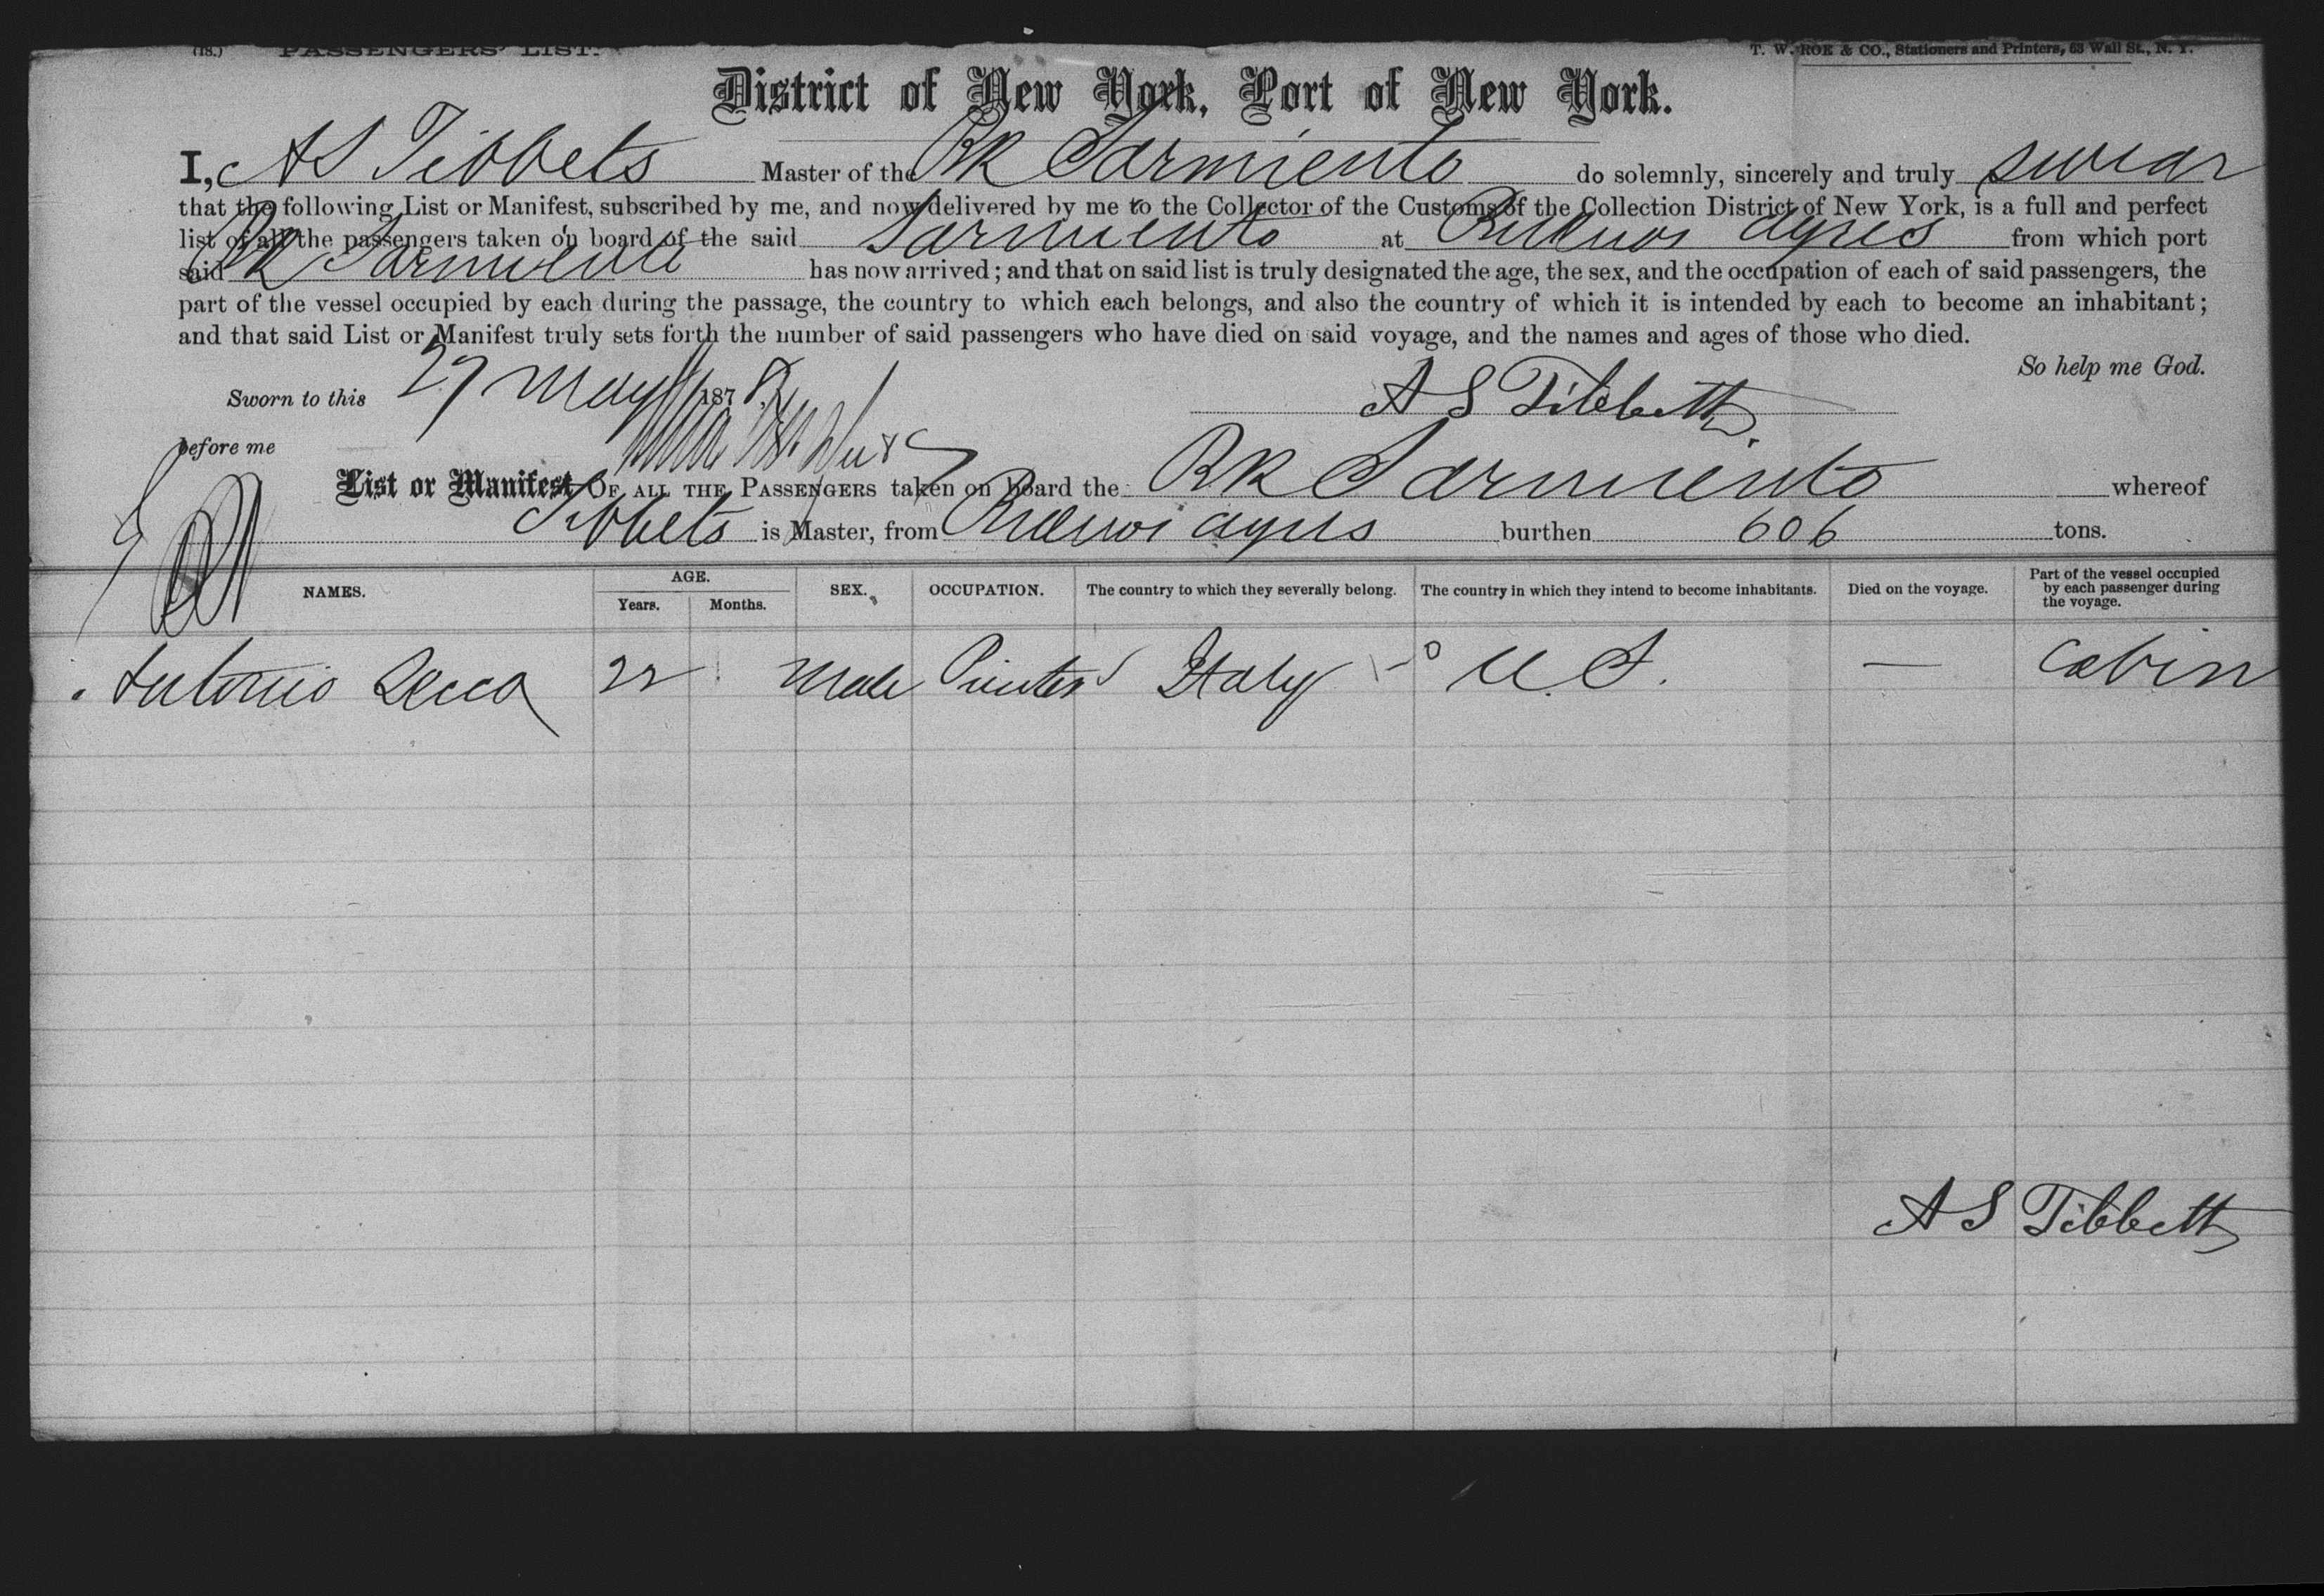 (18.) PASSENGERS' LIST.
T. W. ROE & CO., Stationers and Printers, 63 Wall St., N. Y.
District of New York, Port of New York.
I, A S Tibbets Master of the Bk Sarmiento do solemnly, sincerely and truly swear
that the following List or Manifest, subscribed by me, and now delivered by me to the Collector of the Customs of the Collection District of New York, is a full and perfect
list of all the passengers taken on board of the said Bk Sarmiento at Buenos Ayres from which port
said Bk Sarmiento has now arrived; and that on said list is truly designated the age, the sex, and the occupation of each of said passengers, the
part of the vessel occupied by each during the passage, the country to which each belongs, and also the country of which it is intended by each to become an inhabitant;
and that said List or Manifest truly sets forth the number of said passengers who have died on said voyage, and the names and ages of those who died.
So help me God.
Sworn to this 27 May 1878
A S Tibbetts
before me
List or Manifest OF ALL THE PASSENGERS taken on board the Bk Sarmiento whereof
Tibbets is Master, from Buenos Ayres burthen 606 tons.
NAMES. AGE. Years. Months. SEX. OCCUPATION. The country to which they severally belong. The country in which they intend to become inhabitants. Died on the voyage. Part of the vessel occupied by each passenger during the voyage.
Antonio 22 Male Printer Italy U.S. — Cabin
A S Tibbetts